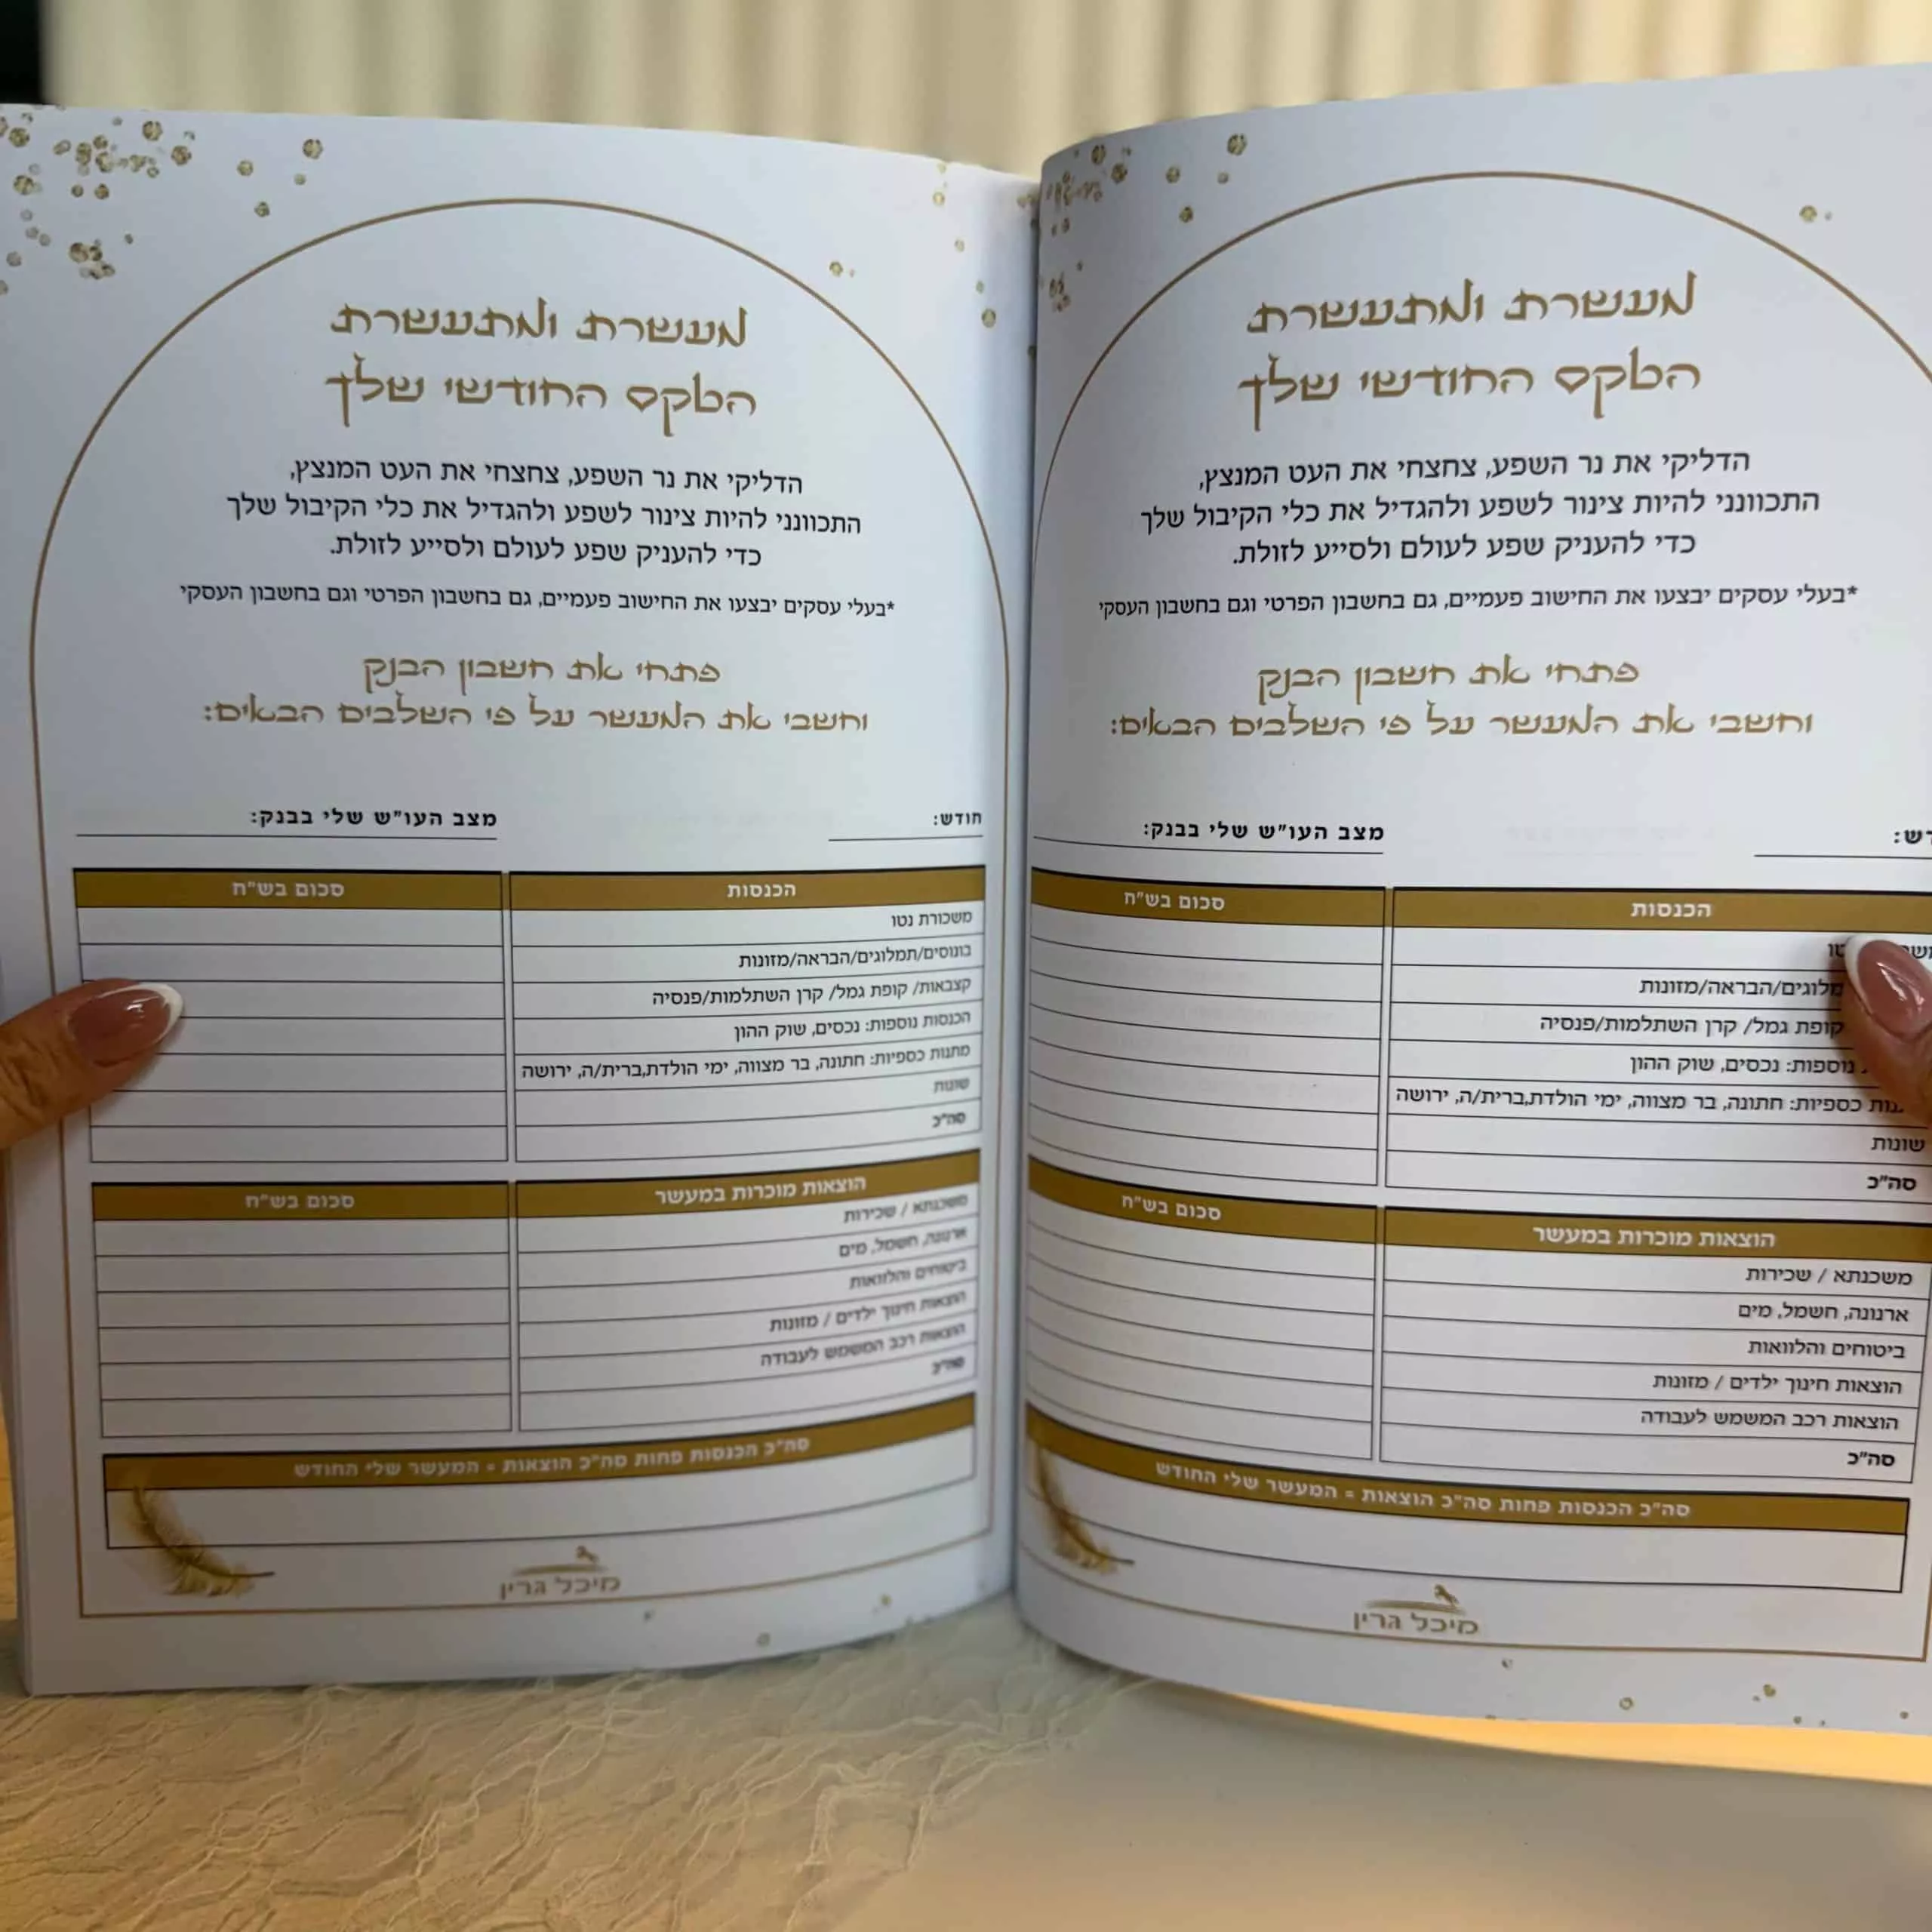 מעשרת ומתעשרת
הטקס החודשי שלך
הדליקי את נר השפע, צחצחי את העט המנצץ,
התכוונני להיות צינור לשפע ולהגדיל את כלי הקיבול שלך
כדי להעניק שפע לעולם ולסייע לזולת.
*בעלי עסקים יבצעו את החישוב פעמיים, גם בחשבון הפרטי וגם בחשבון העסקי
פתחי את חשבון הבנק
וחשבי את המעשר על פי השלבים הבאים:
מצב העו"ש שלי בבנק:
הכנסות סכום בש"ח
תמלוגים/הבראה/מזונות
קופת גמל/ קרן השתלמות/פנסיה
נוספות: נכסים, שוק ההון
כספיות: חתונה, בר מצווה, ימי הולדת,ברית/ה, ירושה
שונות
סה"כ
הוצאות מוכרות במעשר סכום בש"ח
משכנתא / שכירות
ארנונה, חשמל, מים
ביטוחים והלוואות
הוצאות חינוך ילדים / מזונות
הוצאות רכב המשמש לעבודה
סה"כ
סה"כ הכנסות פחות סה"כ הוצאות = המעשר שלי החודש
מיכל גרין
מעשרת ומתעשרת
הטקס החודשי שלך
הדליקי את נר השפע, צחצחי את העט המנצץ,
התכוונני להיות צינור לשפע ולהגדיל את כלי הקיבול שלך
כדי להעניק שפע לעולם ולסייע לזולת.
*בעלי עסקים יבצעו את החישוב פעמיים, גם בחשבון הפרטי וגם בחשבון העסקי
פתחי את חשבון הבנק
וחשבי את המעשר על פי השלבים הבאים:
חודש: מצב העו"ש שלי בבנק:
הכנסות סכום בש"ח
משכורת נטו
בונוסים/תמלוגים/הבראה/מזונות
קצבאות/ קופת גמל/ קרן השתלמות/פנסיה
הכנסות נוספות: נכסים, שוק ההון
מתנות כספיות: חתונה, בר מצווה, ימי הולדת,ברית/ה, ירושה
שונות
סה"כ
הוצאות מוכרות במעשר סכום בש"ח
משכנתא / שכירות
ארנונה, חשמל, מים
ביטוחים והלוואות
הוצאות חינוך ילדים / מזונות
הוצאות רכב המשמש לעבודה
סה"כ
סה"כ הכנסות פחות סה"כ הוצאות = המעשר שלי החודש
מיכל גרין